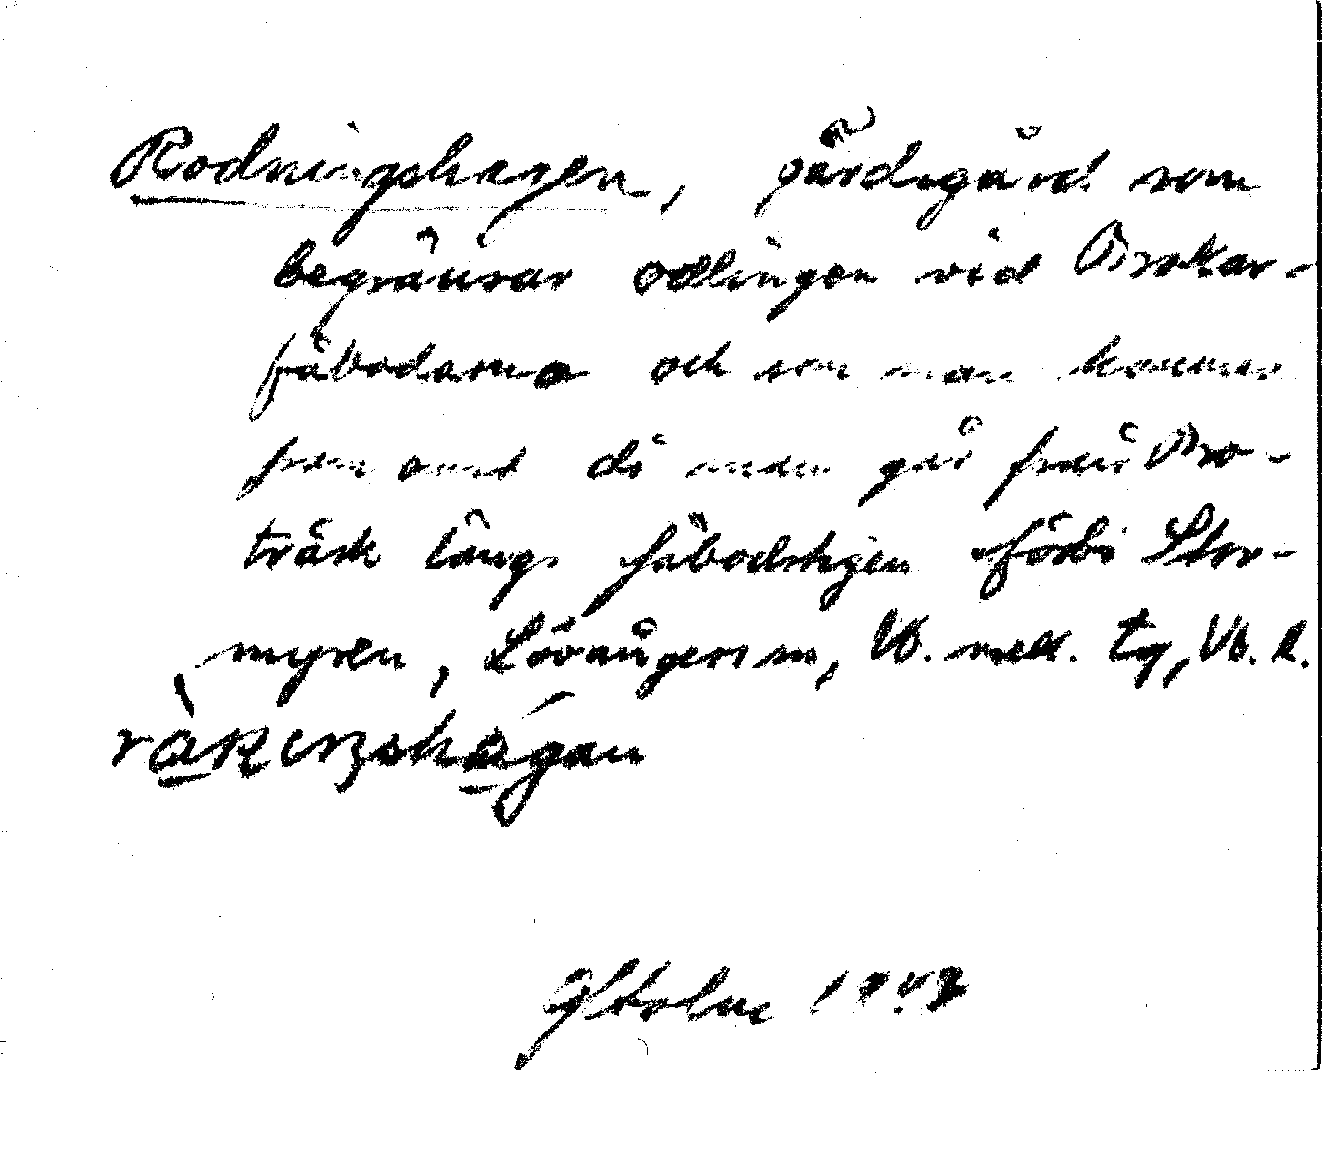 Rodningshagen, gärdsgård som
begränsar odlingen vid Brokar-
fäbodarna och som man kommer
fram emot då man går från Bro-
träsk längs fäbodstigen förbi Stor-
myren, Lövångers sn, Vb. mell. tg, Vb. l.
Holm 1947